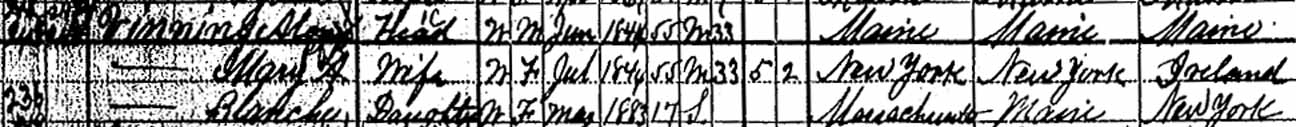 Head W M Jun 1844 55 M 33 Maine Maine Maine
Mary A Wife W F Jul 1844 55 M 33 5 2 New York New York Ireland
Blanche Daughter W F May 1883 17 S Maine New York